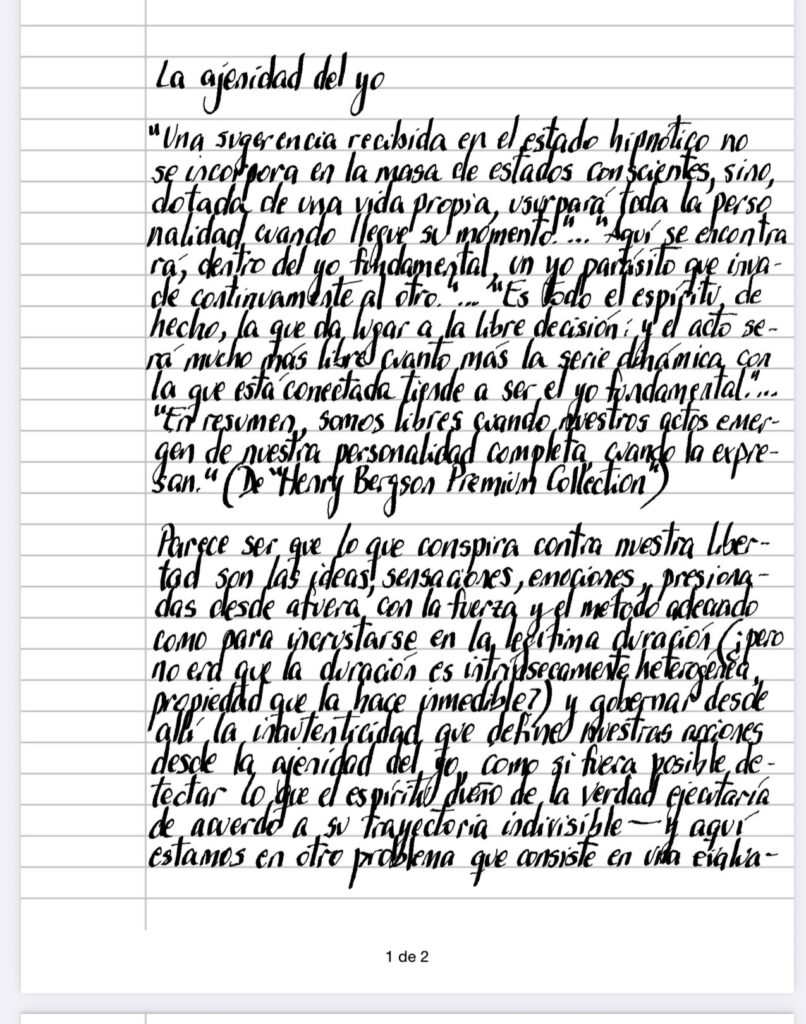 La ajenidad del yo
"Una sugerencia recibida en el estado hipnótico no
se incorpora en la masa de estados conscientes, sino,
dotada de una vida propia, usurpará toda la perso
nalidad cuando llegue su momento."..."Aquí se encontra
rá, dentro del yo fundamental, un yo parásito que inva-
de continuamente al otro."..."Es todo el espíritu, de
hecho, la que da lugar a la libre decisión; y el acto se-
rá mucho más libre cuanto más la serie dinámica con
la que está conectada tiende a ser el yo fundamental."...
"En resumen, somos libres cuando nuestros actos emer-
gen de nuestra personalidad completa, cuando la expre-
san." (De "Henry Bergson Premium Collection")
Parece ser que lo que conspira contra nuestra liber-
tad son las ideas, sensaciones, emociones, presiona-
das desde afuera, con la fuerza y el método adecuado
como para incrustarse en la legítima duración (¿pero
no era que la duración es intrínsecamente heterogénea,
propiedad que la hace inmedible?) y gobernar desde
allí la inautenticidad que define nuestras acciones
desde la ajenidad del yo, como si fuera posible de-
tectar lo que el espíritu dueño de la verdad ejecutaría
de acuerdo a su trayectoria indivisible—y aquí
estamos en otro problema que consiste en una evalua-
1 de 2